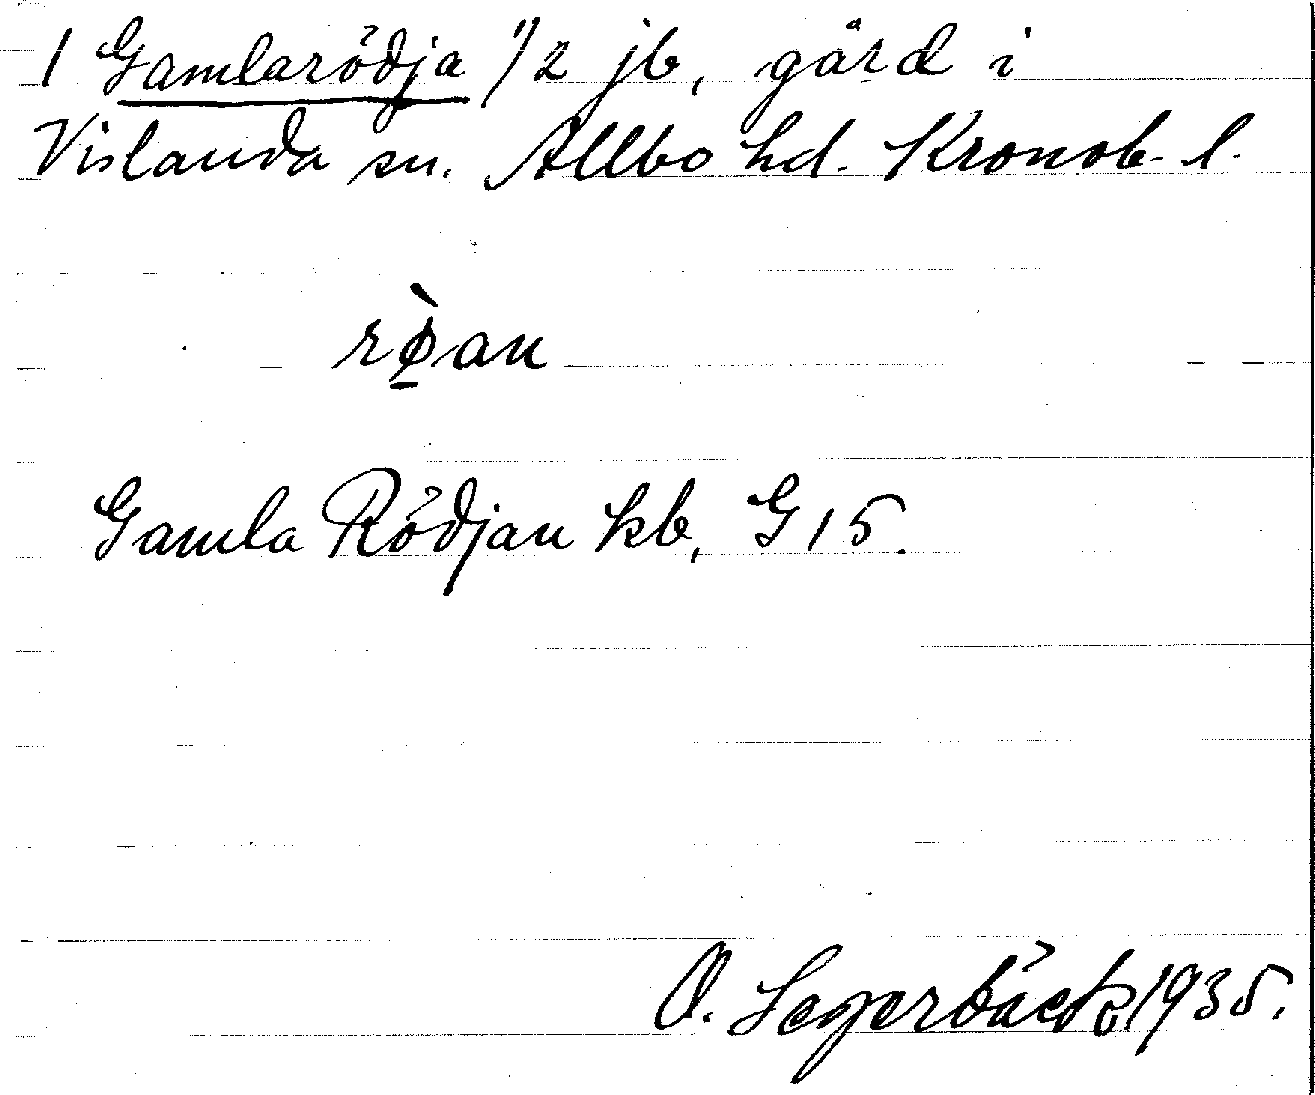 1 Gamlarödja 1/2 jb, gård i
Vislanda sn. Allbo hd. Kronob. l.
rø̠̀an
Gamla Rödjan kb, G 15.
O. Segerbäck 1935.